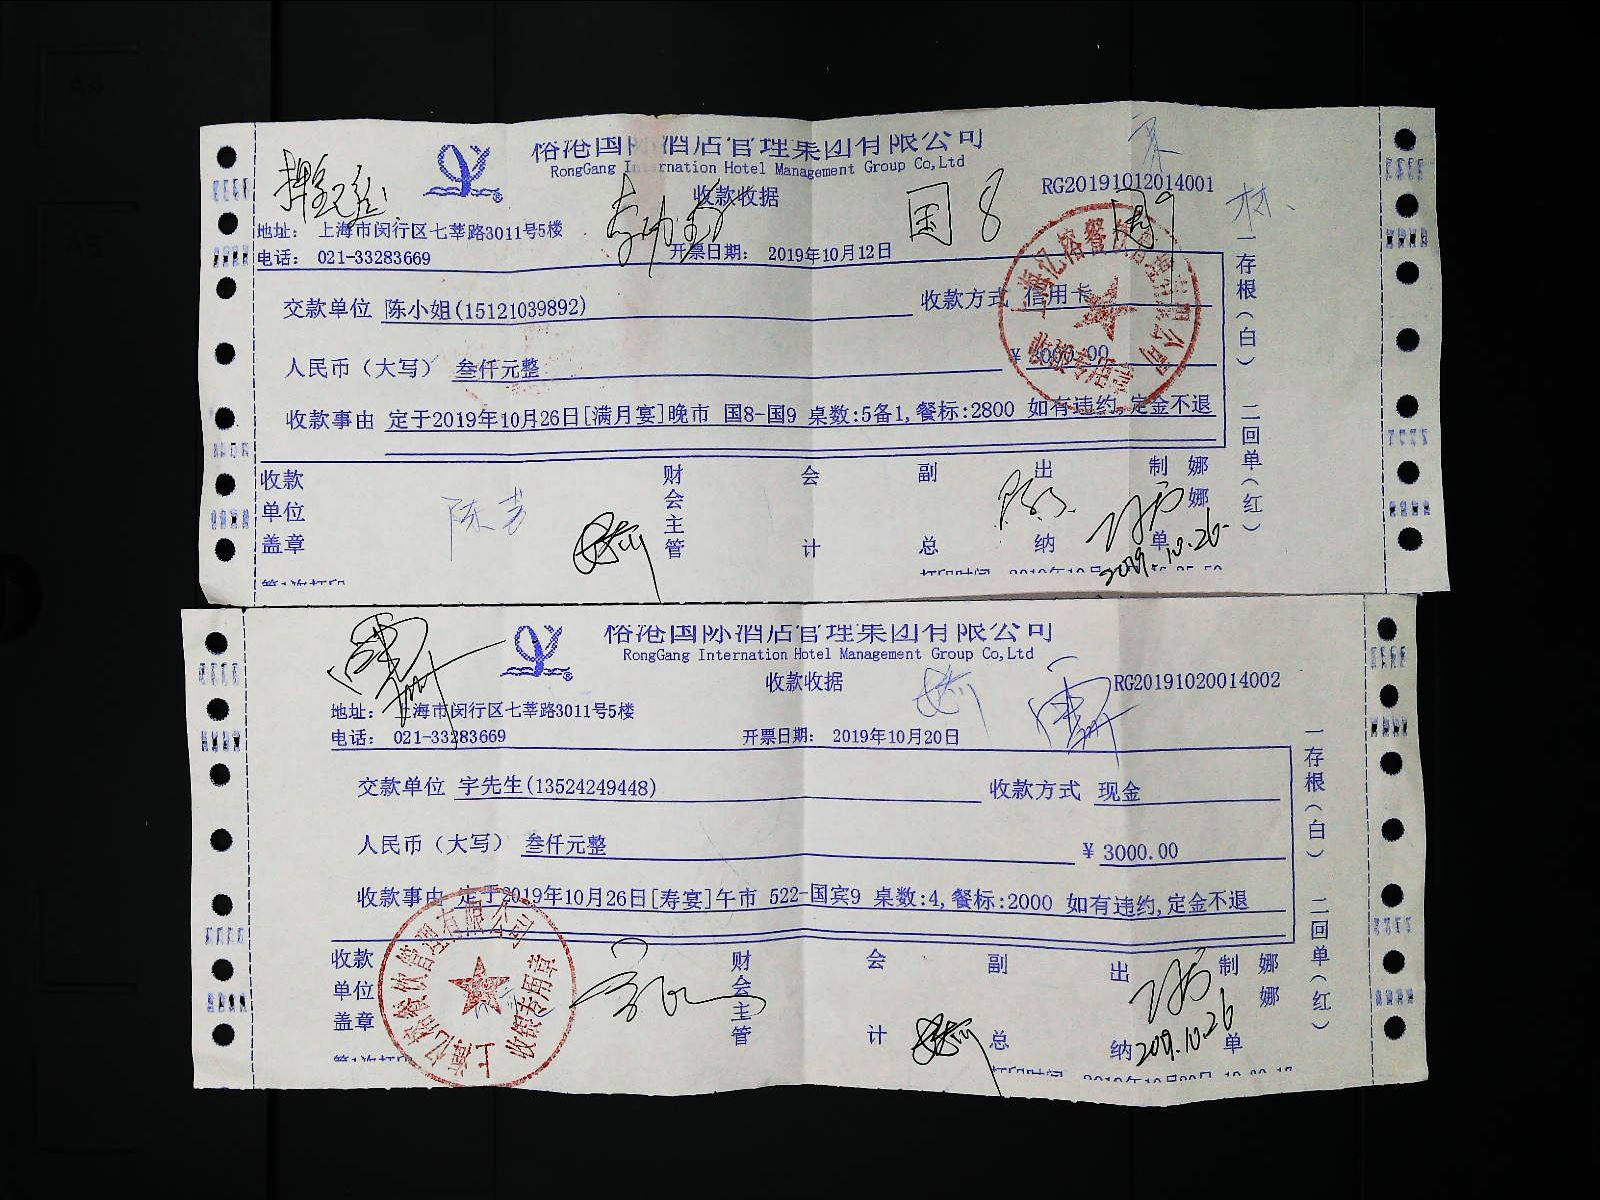 裕港国际酒店管理集团有限公司
RongGang Internation Hotel Management Group Co,Ltd
收款收据
RG20191012014001
国8
地址: 上海市闵行区七莘路3011号5楼
电话: 021-33283669
开票日期: 2019年10月12日
交款单位 陈小姐(15121039892)
收款方式 信用卡
人民币(大写) 叁仟元整
¥ 3000.00
收款事由 定于2019年10月26日[满月宴]晚市 国8-国9 桌数:5备1,餐标:2800 如有违约,定金不退
收款单位盖章
财会主管
会计
副总
出纳
制单
娜娜
2019.10.26
一存根(白) 二回单(红)
裕港国际酒店管理集团有限公司
RongGang Internation Hotel Management Group Co,Ltd
收款收据
RG20191020014002
地址: 上海市闵行区七莘路3011号5楼
电话: 021-33283669
开票日期: 2019年10月20日
交款单位 宇先生(13524249448)
收款方式 现金
人民币(大写) 叁仟元整
¥ 3000.00
收款事由 定于2019年10月26日[寿宴]午市 522-国宾9 桌数:4,餐标:2000 如有违约,定金不退
收款单位盖章
上海亿熔餐饮管理有限公司
收银专用章
财会主管
会计
副总
出纳
制单
娜娜
2019.10.26
一存根(白) 二回单(红)